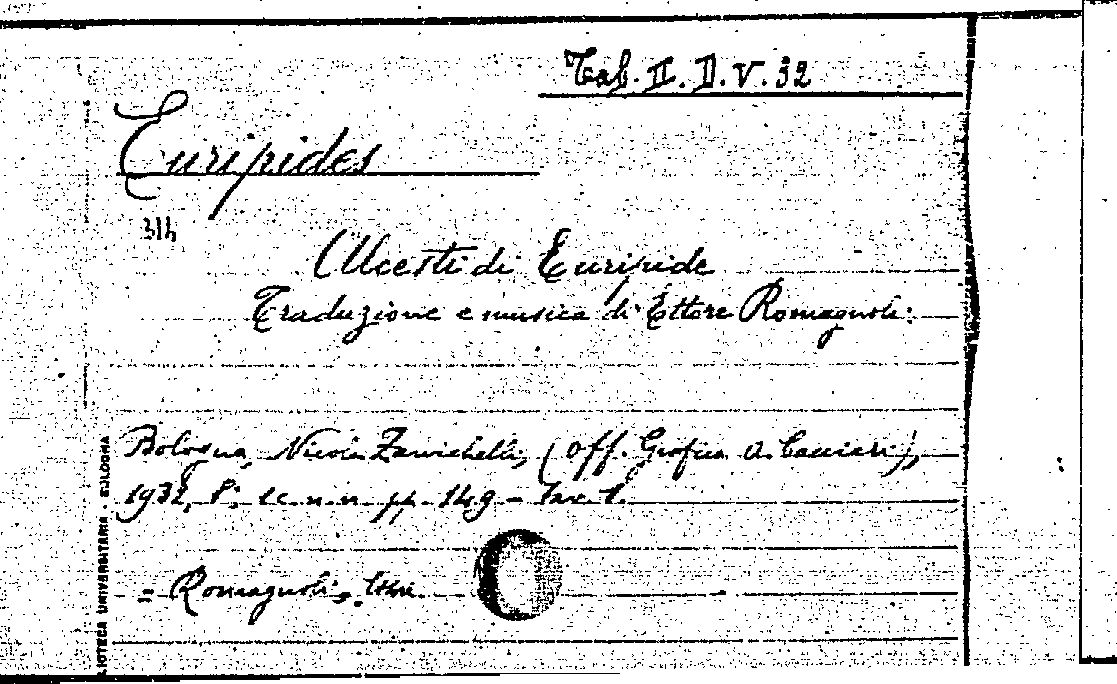 Tab. II. D. V. 32
Euripides
314
Alcesti di Euripide
Traduzione e musica di Ettore Romagnoli.
Bologna, Nicola Zanichelli, (Off. Grafica A. Cacciari),
1932, 8°, 1c. n. n. pp. 149 - Tav. 1.
= Romagnoli, Ettore.
BIOTECA UNIVERSITARIA - BOLOGNA